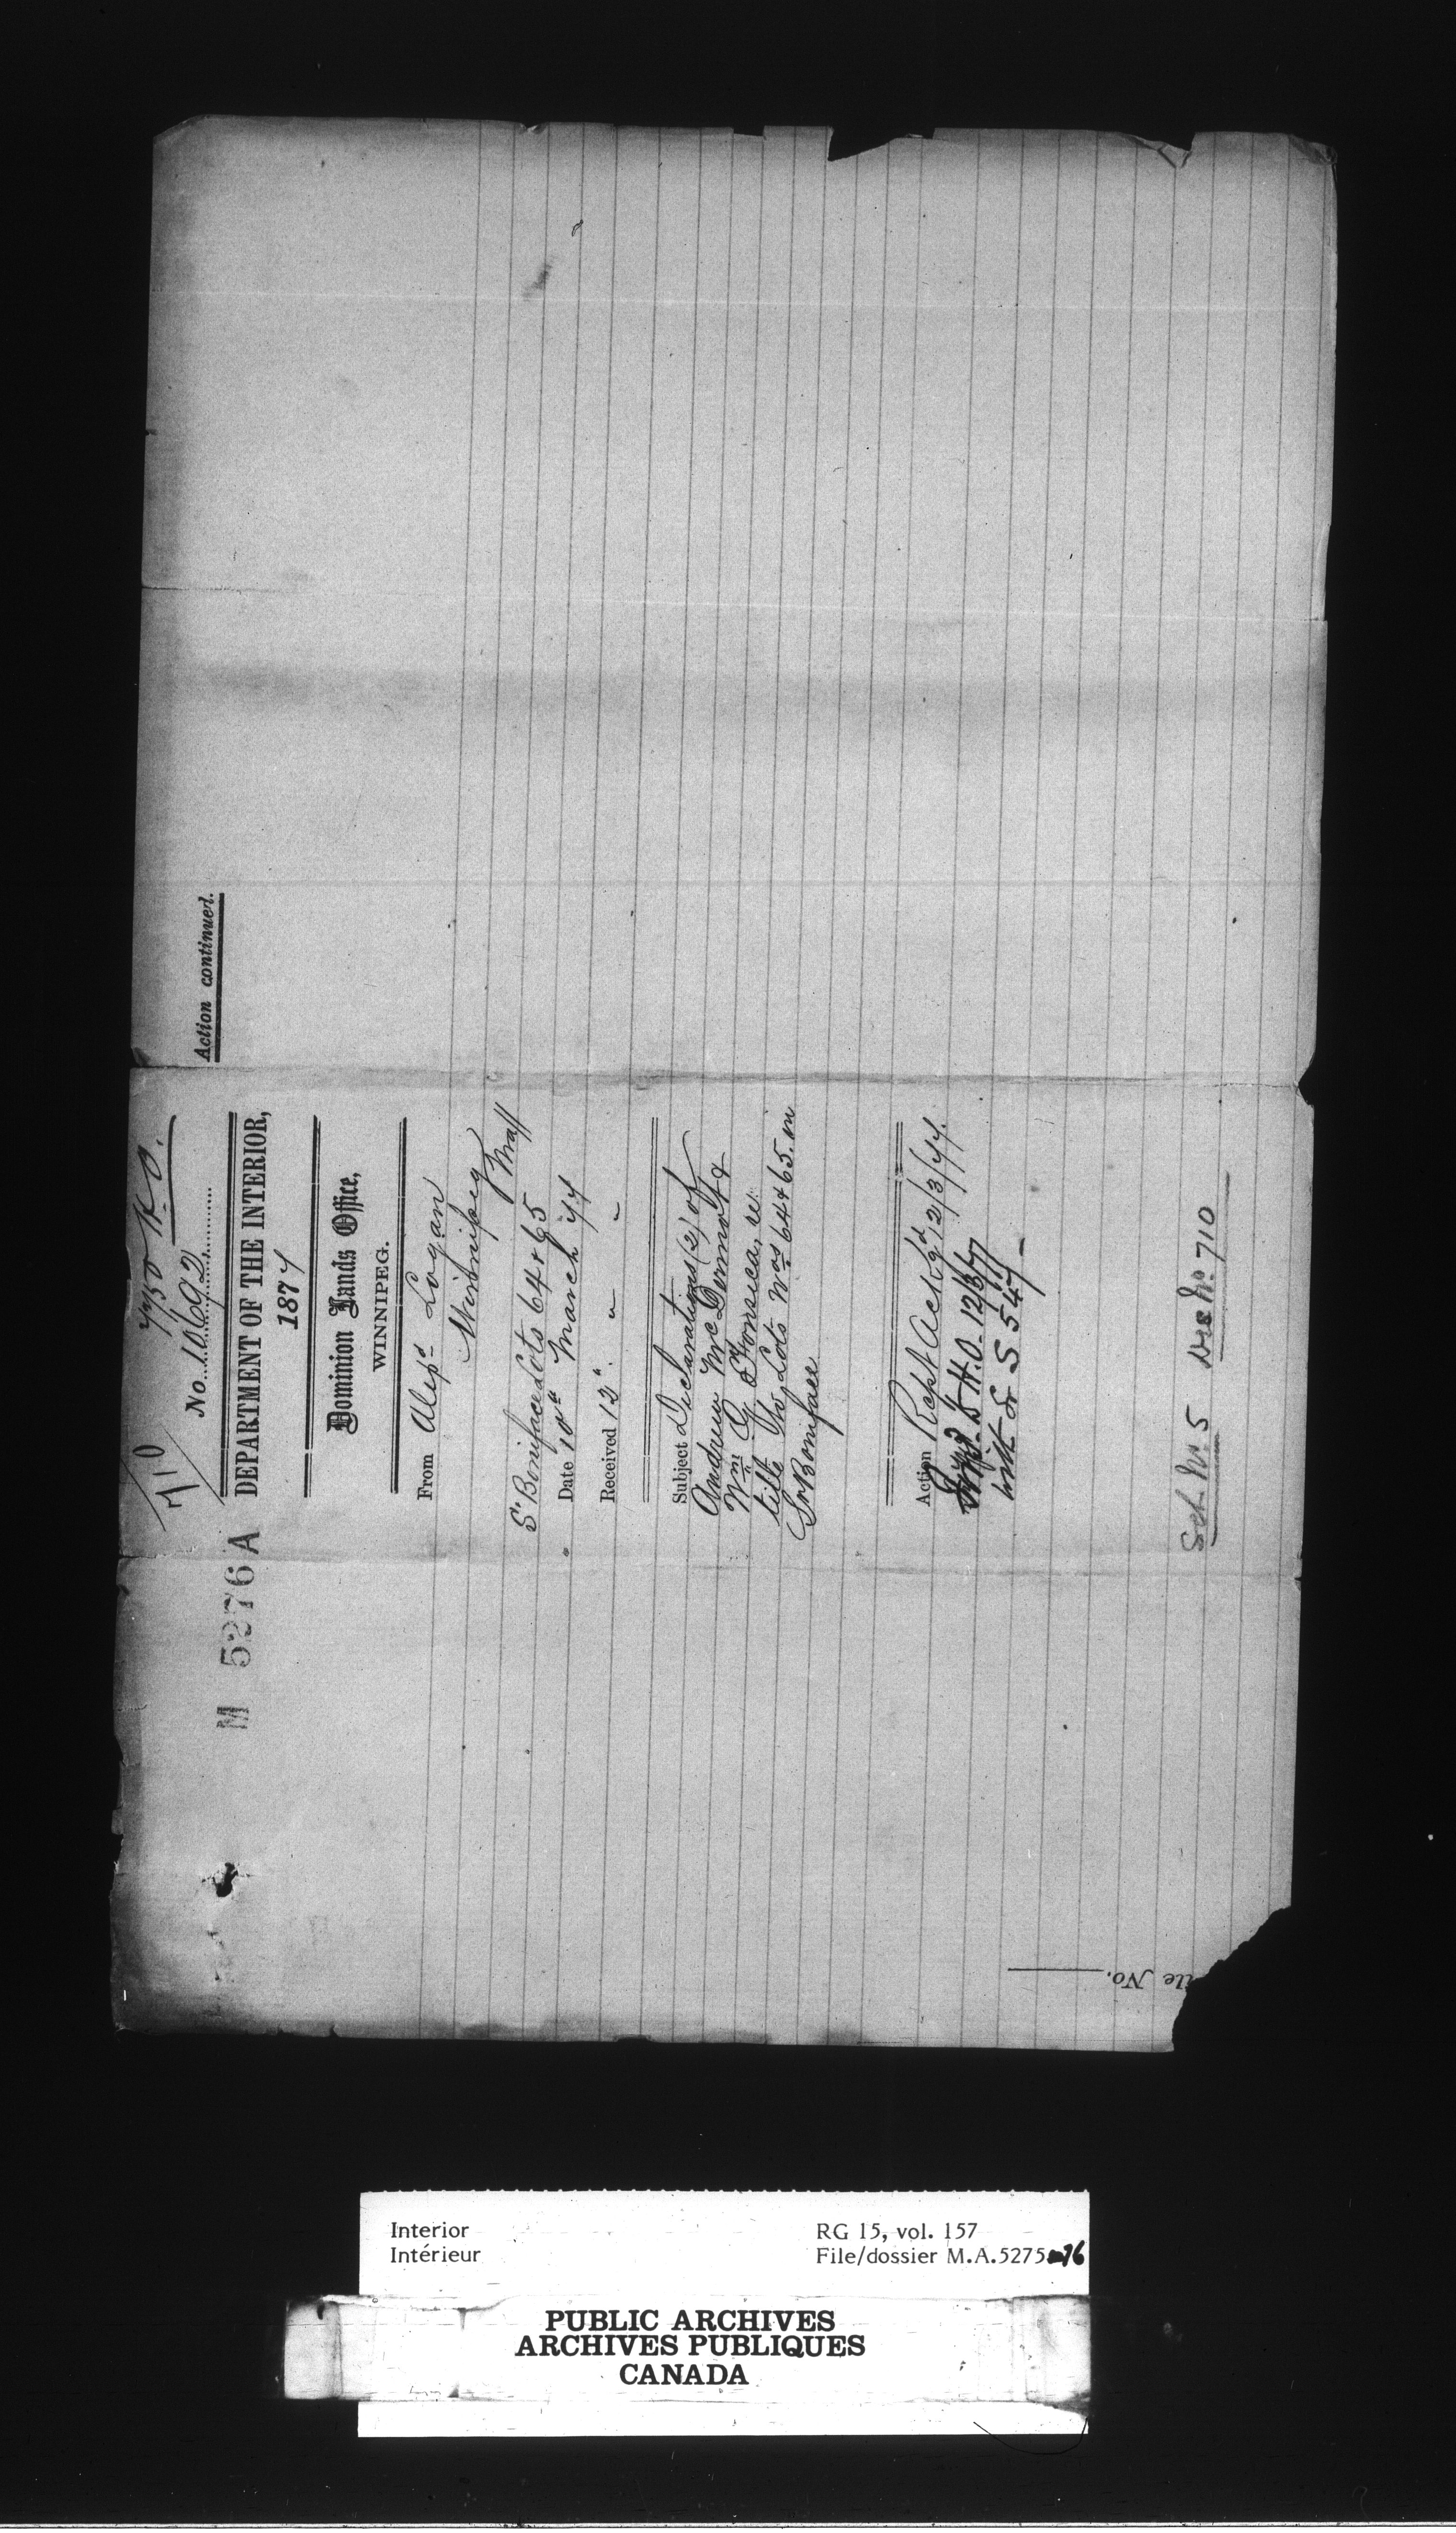 7750 H.O.
710
No. 10692
M 5276 A
DEPARTMENT OF THE INTERIOR,
1877
Dominion Lands Office,
WINNIPEG.
From Alexr Logan
Winnipeg
St Boniface Lots 64 & 65
Date 10th March 77
Received 12th " "
Subject Declarations (2) of
Andrew McDermott &
Wm G Fonseca, re
title to Lots Nos 64 & 65 in
St Boniface
Action Rept Ackgd 12/3/77.
H.O. 12/3/77
with S 547
Sch. No. 5 Dec No. 710
Action continued.
No.
Interior
Intérieur
RG 15, vol. 157
File/dossier M.A.5275-76
PUBLIC ARCHIVES
ARCHIVES PUBLIQUES
CANADA